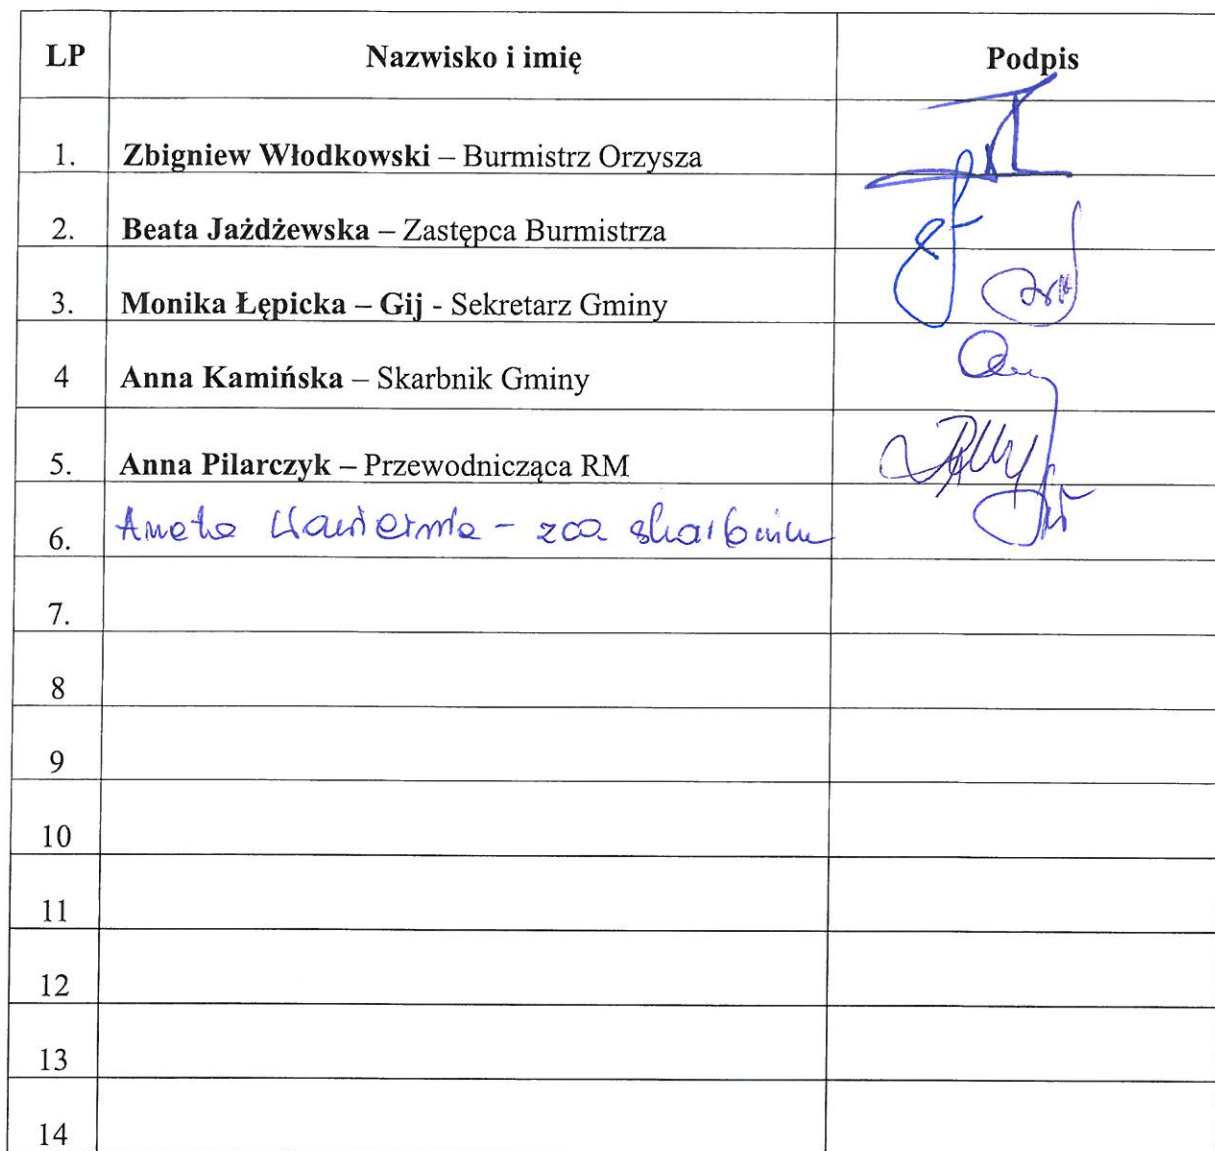 LP Nazwisko i imię Podpis
1. Zbigniew Włodkowski – Burmistrz Orzysza
2. Beata Jażdżewska – Zastępca Burmistrza
3. Monika Łępicka – Gij - Sekretarz Gminy
4 Anna Kamińska – Skarbnik Gminy
5. Anna Pilarczyk – Przewodnicząca RM
6. Aneta - zca skarbnika
7.
8
9
10
11
12
13
14